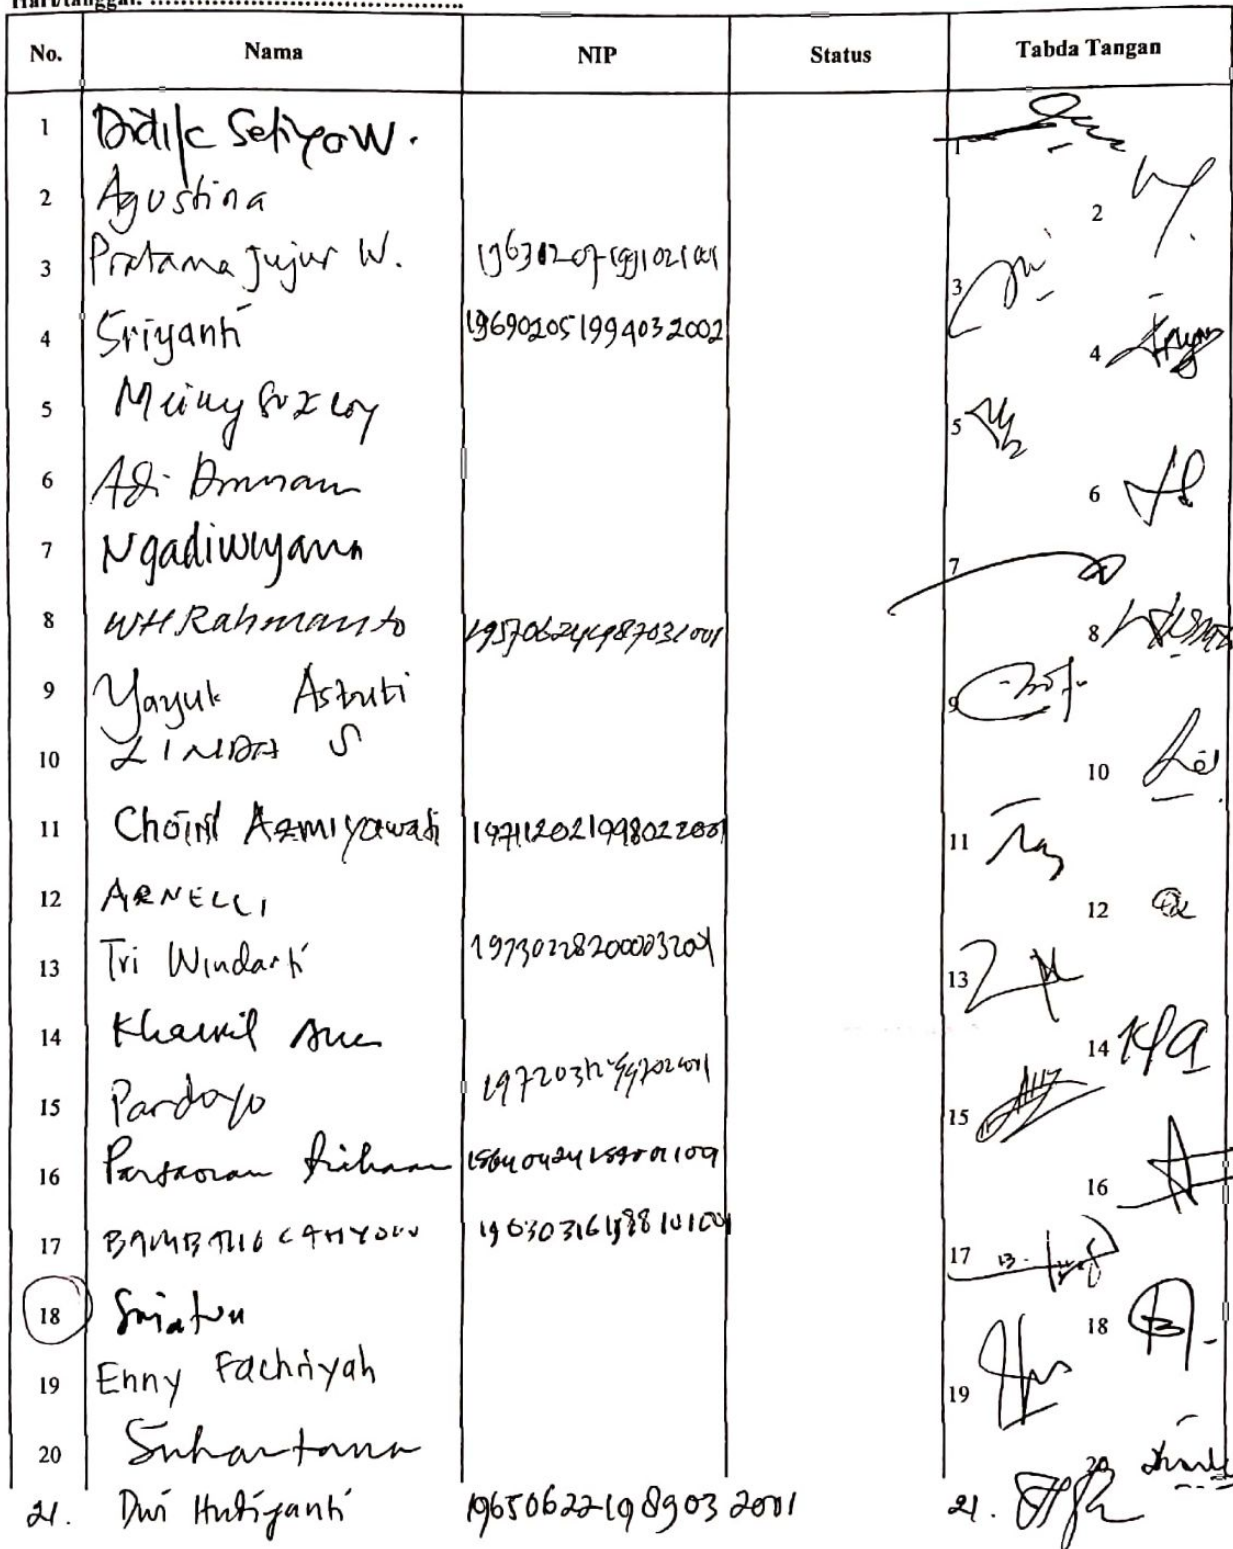 Hari/tanggal: ........................................
No. Nama NIP Status Tabda Tangan
1 Didik Setiyo W. 1
2 Agustina 2
3 Pratama Jujur W. 196312071991021001 3
4 Sriyanti 196902051994032002 4
5 5
6 Adi 6
7 Ngadiwiyana 7
8 WH Rahmanto 195706241987031001 8
9 Yayuk Astuti 9
10 LINDA S 10
11 Choiril Azmiyawati 197112021998022001 11
12 ARNELLI 12
13 Tri Windarti 13
14 Khairil 14
15 Pardoyo 15
16 Parsaoran 16
17 BAMBANG CAHYONO 196303161988101001 17
18 Sriatun 18
19 Enny Fachriyah 19
20 Suhartana 20
21. Dwi Hudiyanti 196506221989032001 21.